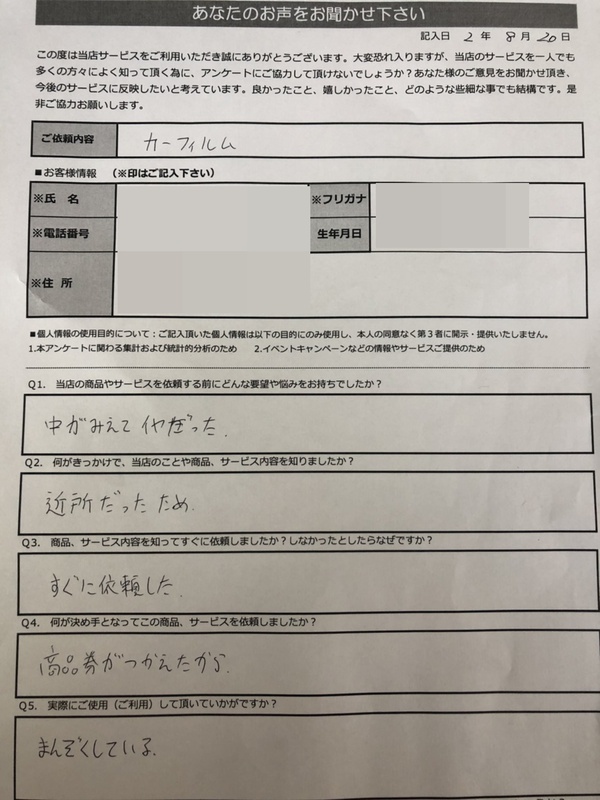 あなたのお声をお聞かせ下さい
記入日 2 年 8 月 20 日
この度は当店サービスをご利用いただき誠にありがとうございます。大変恐れ入りますが、当店のサービスを一人でも
多くの方々によく知って頂く為に、アンケートにご協力して頂けないでしょうか?あなた様のご意見をお聞かせ頂き、
今後のサービスに反映したいと考えています。良かったこと、嬉しかったこと、どのような些細な事でも結構です。是
非ご協力お願いします。
ご依頼内容 カーフィルム
■お客様情報 (※印はご記入下さい)
※氏 名 ※フリガナ
※電話番号 生年月日
※住 所
■個人情報の使用目的について:ご記入頂いた個人情報は以下の目的にのみ使用し、本人の同意なく第3者に開示・提供いたしません。
1.本アンケートに関わる集計および統計的分析のため 2.イベントキャンペーンなどの情報やサービスご提供のため
Q1. 当店の商品やサービスを依頼する前にどんな要望や悩みをお持ちでしたか?
中がみえて イヤだった.
Q2. 何がきっかけで、当店のことや商品、サービス内容を知りましたか?
近所だった ため.
Q3. 商品、サービス内容を知ってすぐに依頼しましたか?しなかったとしたらなぜですか?
すぐに依頼した.
Q4. 何が決め手となってこの商品、サービスを依頼しましたか?
商品券がつかえたから.
Q5. 実際にご使用(ご利用)して頂いていかがですか?
まんぞくしている.